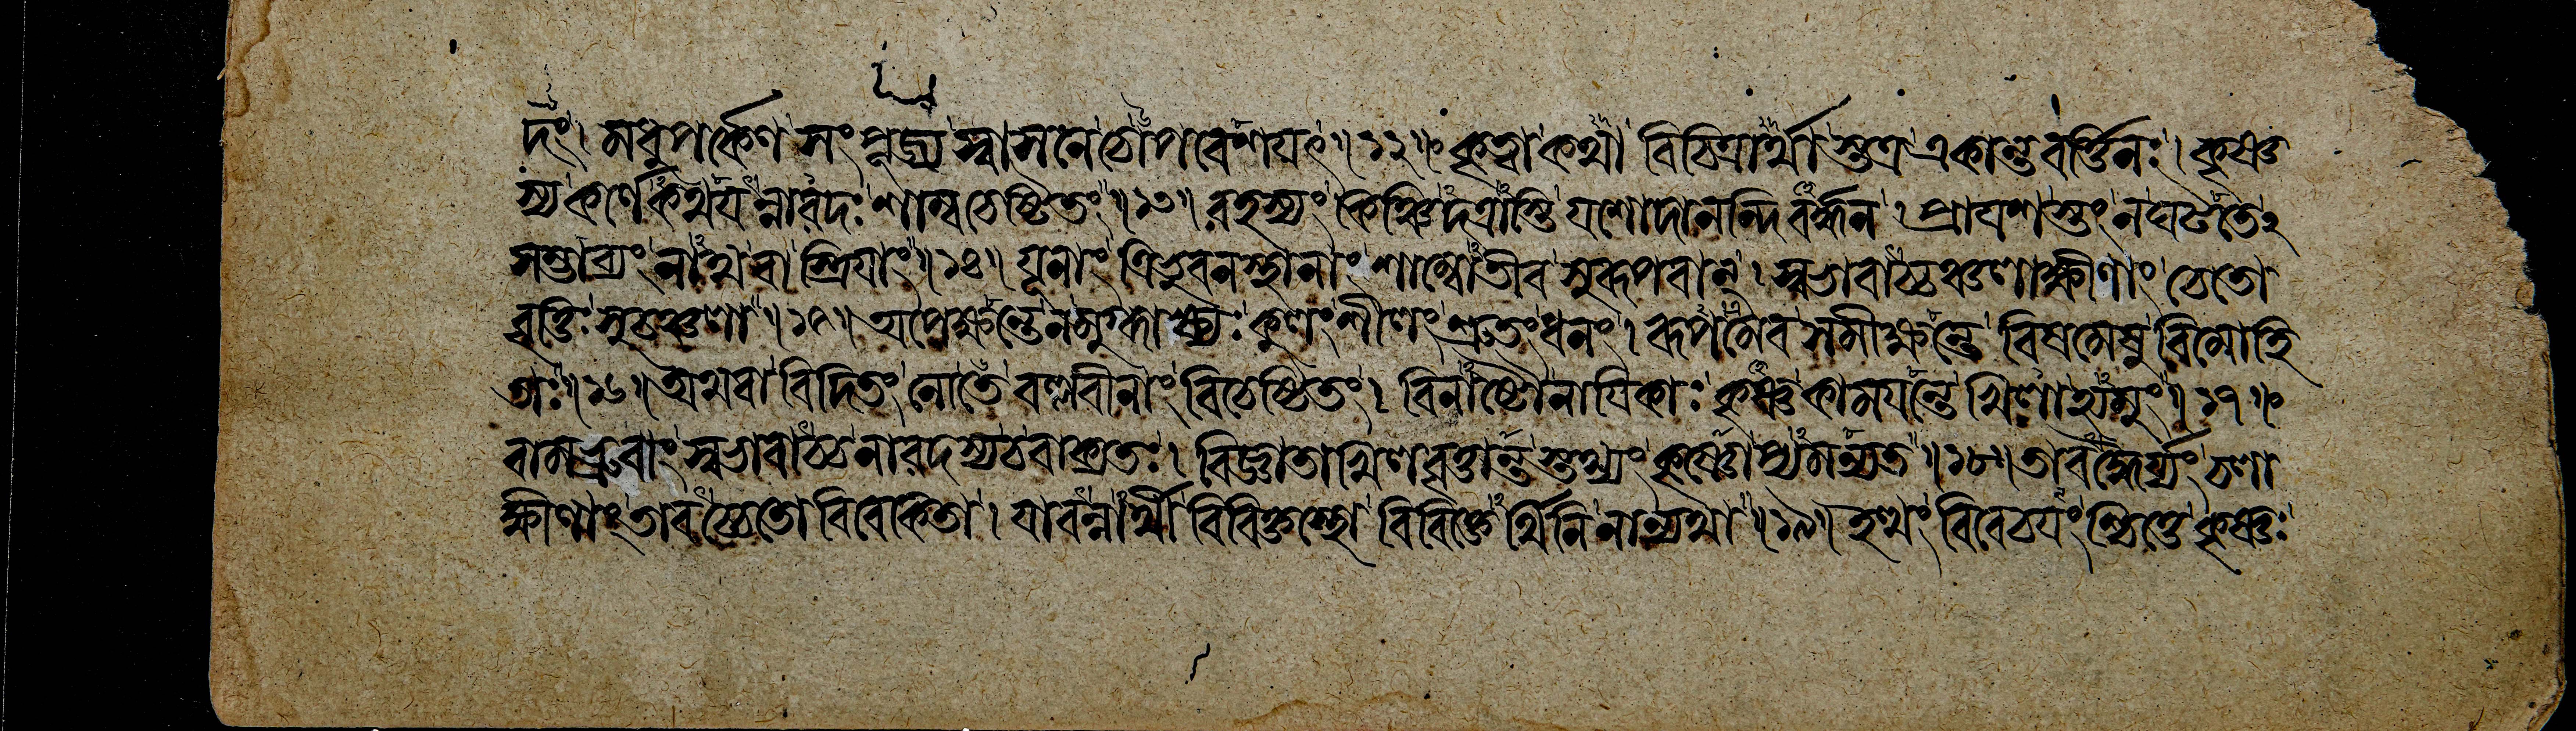 দং। মধুপর্কেণ সংপূজ্য স্বাসনে চোপবেশয়ৎ॥১২॥ কৃত্বা কথা বিচিত্রার্থাস্তত্র একান্তবর্ত্তিনঃ। কৃষ্ণ
স্য কর্ণে কথয়ন্নারদঃ শাম্বচেষ্টিতং॥১৩॥ রহস্যং কিঞ্চিদত্রাস্তি যশোদানন্দিবর্দ্ধন। প্রায়শস্তং ন ঘটতে
সম্ভাব্যং নাথবা স্ত্রিয়াং॥১৪॥ যূনাং ত্রিভুবনস্থানাং শাম্বোতীব সুরূপবান্। স্বভাবাচ্চঞ্চলাক্ষীণাং চেতো
বৃত্তিঃ সুচঞ্চলা॥১৫॥ অপেক্ষন্তে ন মুগ্ধাক্ষ্যঃ কুলং শীলং শ্রুতং ধনং। রূপমেব সমীক্ষন্তে বিষমেষু বিমোহি
তাঃ॥১৬॥ অথবা বিদিতং নোতে বল্লবীনাং বিচেষ্টিতং। বিনাষ্টৌ নায়িকাঃ কৃষ্ণ কাময়ন্তেখিলাহ্যমুং॥১৭॥
বামভ্রুবাং স্বভাবাচ্চ নারদস্য চ বাক্যতঃ। বিজ্ঞাতাখিলবৃত্তান্তস্তথ্যং কৃষ্ণোপ্যমন্যত॥১৮॥ তাবদ্ধৈর্য্যং চলা
ক্ষীণাং তাবচ্চেতো বিবেকিতা। যাবন্নার্থী বিবিক্তস্থো বিবিক্তের্থিনি নান্যথা॥১৯॥ ইত্থং বিবেচয়ংশ্চিত্তে কৃষ্ণঃ